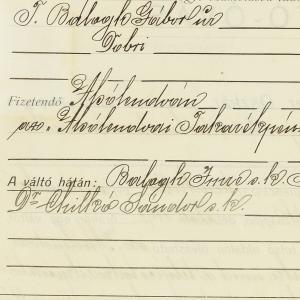 T. Balogh Gábor úr
Dobri
Fizetendő Alsólendván
az Alsólendvai Takarékpén
A váltó hátán: Balogh Imre s.k.
Dr Chilkó Sándor s.k.